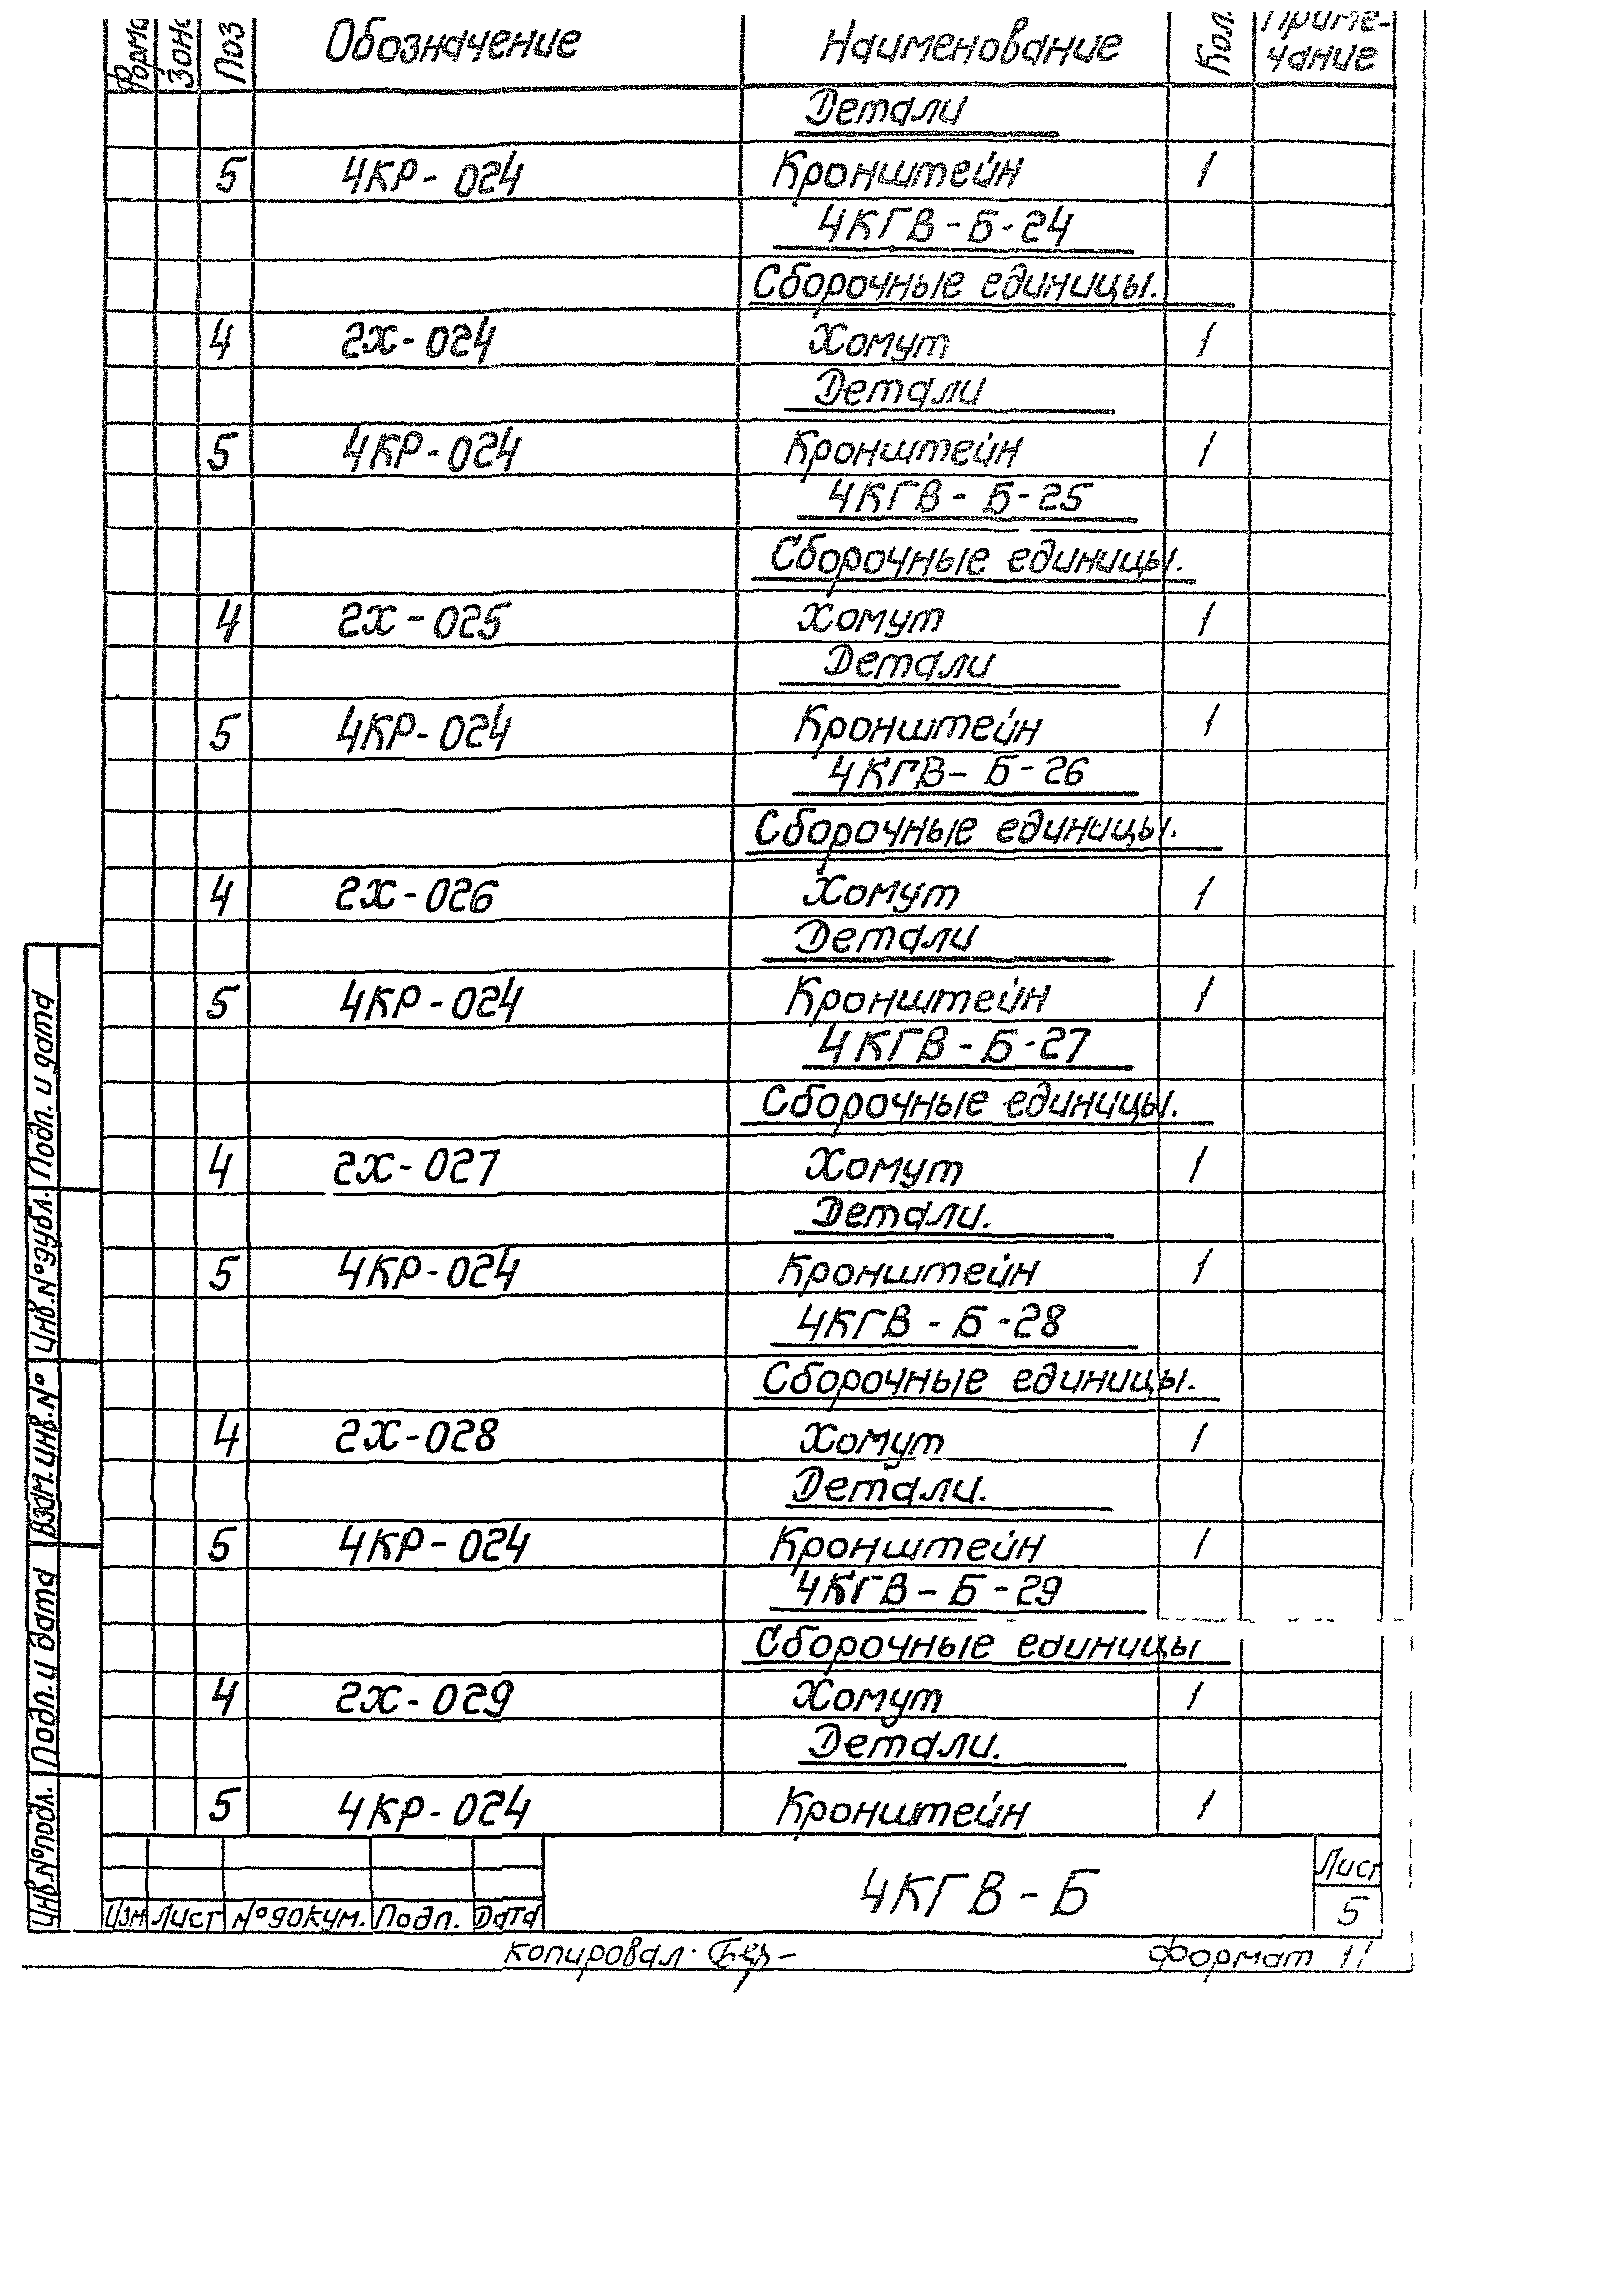 Форма Зона Поз Обозначение Наименование Кол. Приме-
чание
Детали
5 4КР-024 Кронштейн 1
4КГВ-Б-24
Сборочные единицы.
4 2Х-024 Хомут 1
Детали
5 4КР-024 Кронштейн 1
4КГВ-Б-25
Сборочные единицы.
4 2Х-025 Хомут 1
Детали
5 4КР-024 Кронштейн 1
4КГВ-Б-26
Сборочные единицы.
4 2Х-026 Хомут 1
Детали
5 4КР-024 Кронштейн 1
4КГВ-Б-27
Сборочные единицы.
4 2Х-027 Хомут 1
Детали.
5 4КР-024 Кронштейн 1
4КГВ-Б-28
Сборочные единицы.
4 2Х-028 Хомут 1
Детали.
5 4КР-024 Кронштейн 1
4КГВ-Б-29
Сборочные единицы
4 2Х-029 Хомут 1
Детали.
5 4КР-024 Кронштейн 1
Подп. и дата
Инв.№дубл.
Взам.инв.№
Подп. и дата
Инв.№подл.
Изм Лист №докум. Подп. Дата
4КГВ-Б
Лист
5
копировал. формат 11